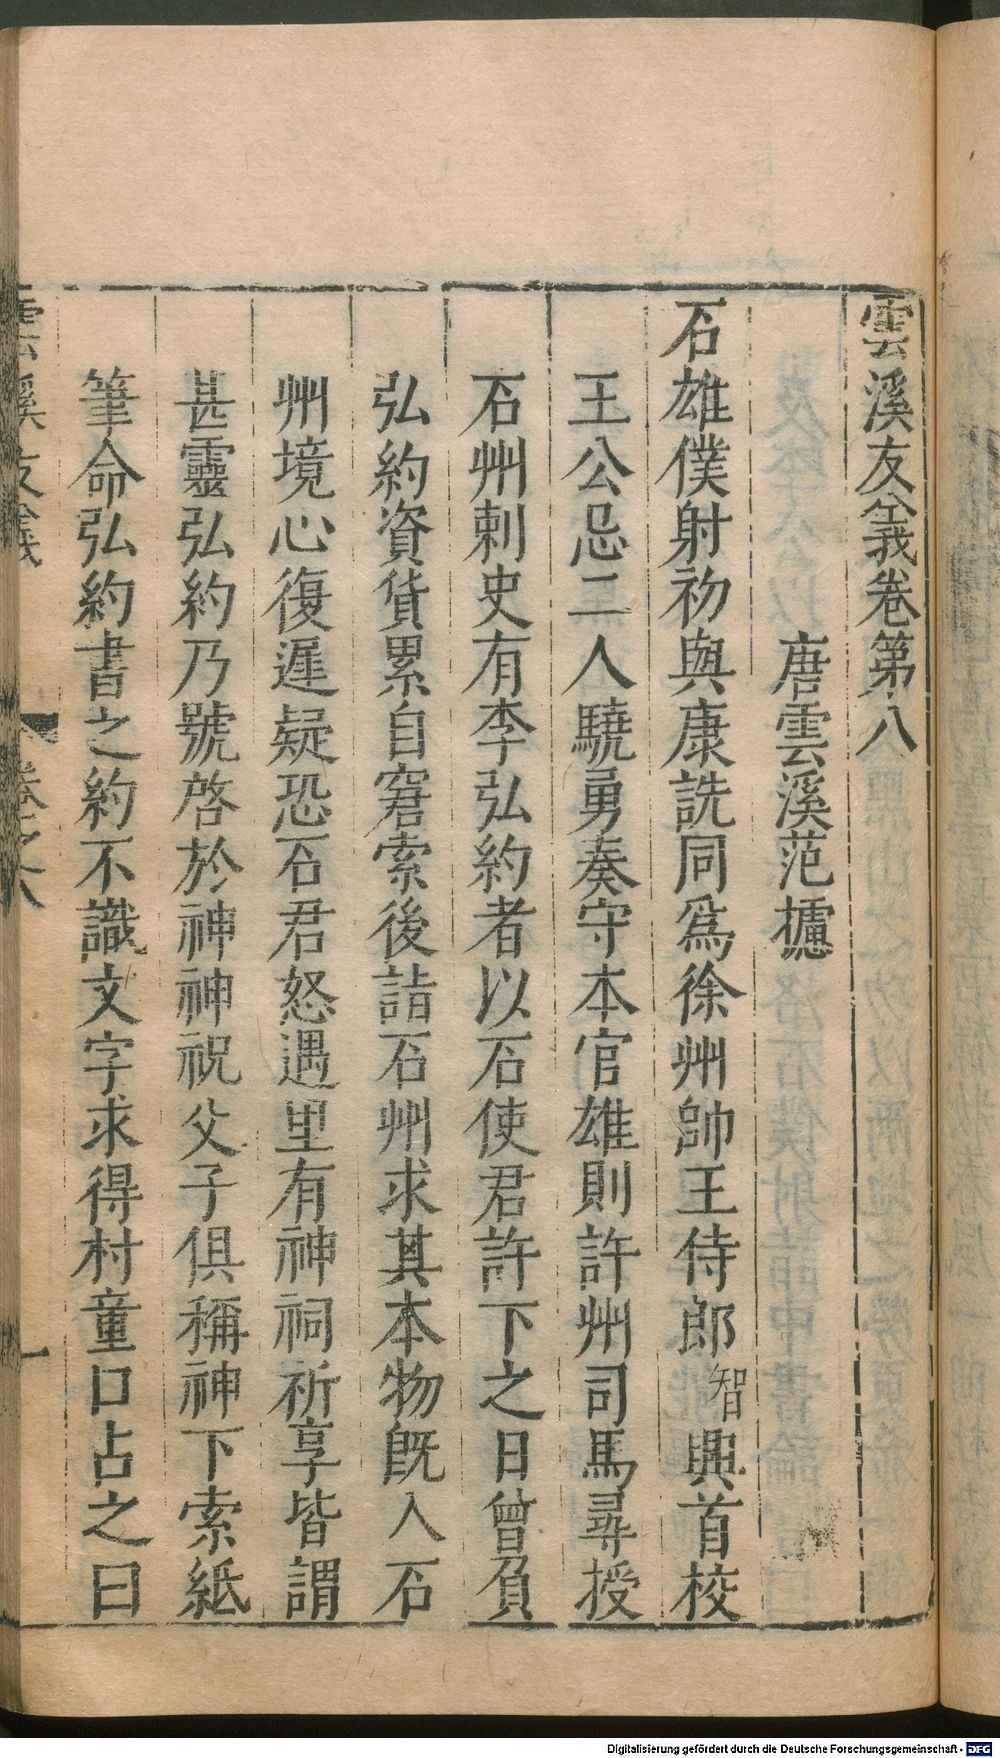 雲溪友議卷第八
唐雲溪范攄
石雄僕射初與康詵同爲徐州帥王侍郎智興首校
王公忌二人驍勇奏守本官雄則許州司馬尋授
石州刺史有李弘約者以石使君許下之日曾負
弘約資貨累自窘索後詣石州求其本物旣入石
州境心復遲疑恐石君怒遇里有神祠祈享皆謂
甚靈弘約乃號啓於神神祝父子俱稱神下索紙
筆命弘約書之約不識文字求得村童口占之曰
雲溪友議 卷之八 一
Digitalisierung gefördert durch die Deutsche Forschungsgemeinschaft - DFG